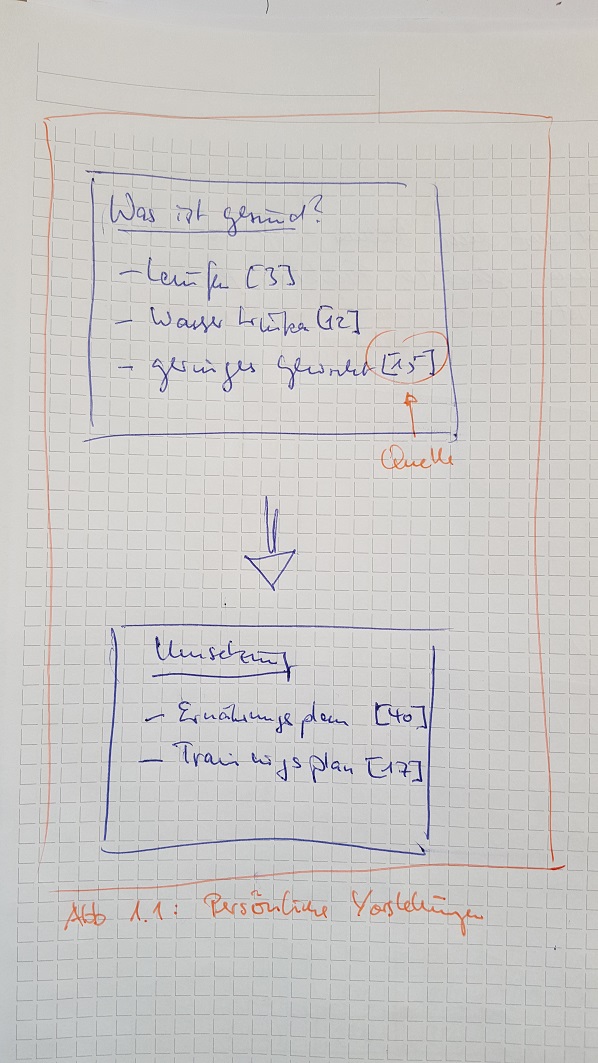 Was ist gesund?
- Laufen [3]
- Wasser trinken [12]
- geringes Gewicht [15]
Quelle
Umsetzung
- Ernährungsplan [40]
- Trainingsplan [17]
Abb 1.1: Persönliche Vorstellungen